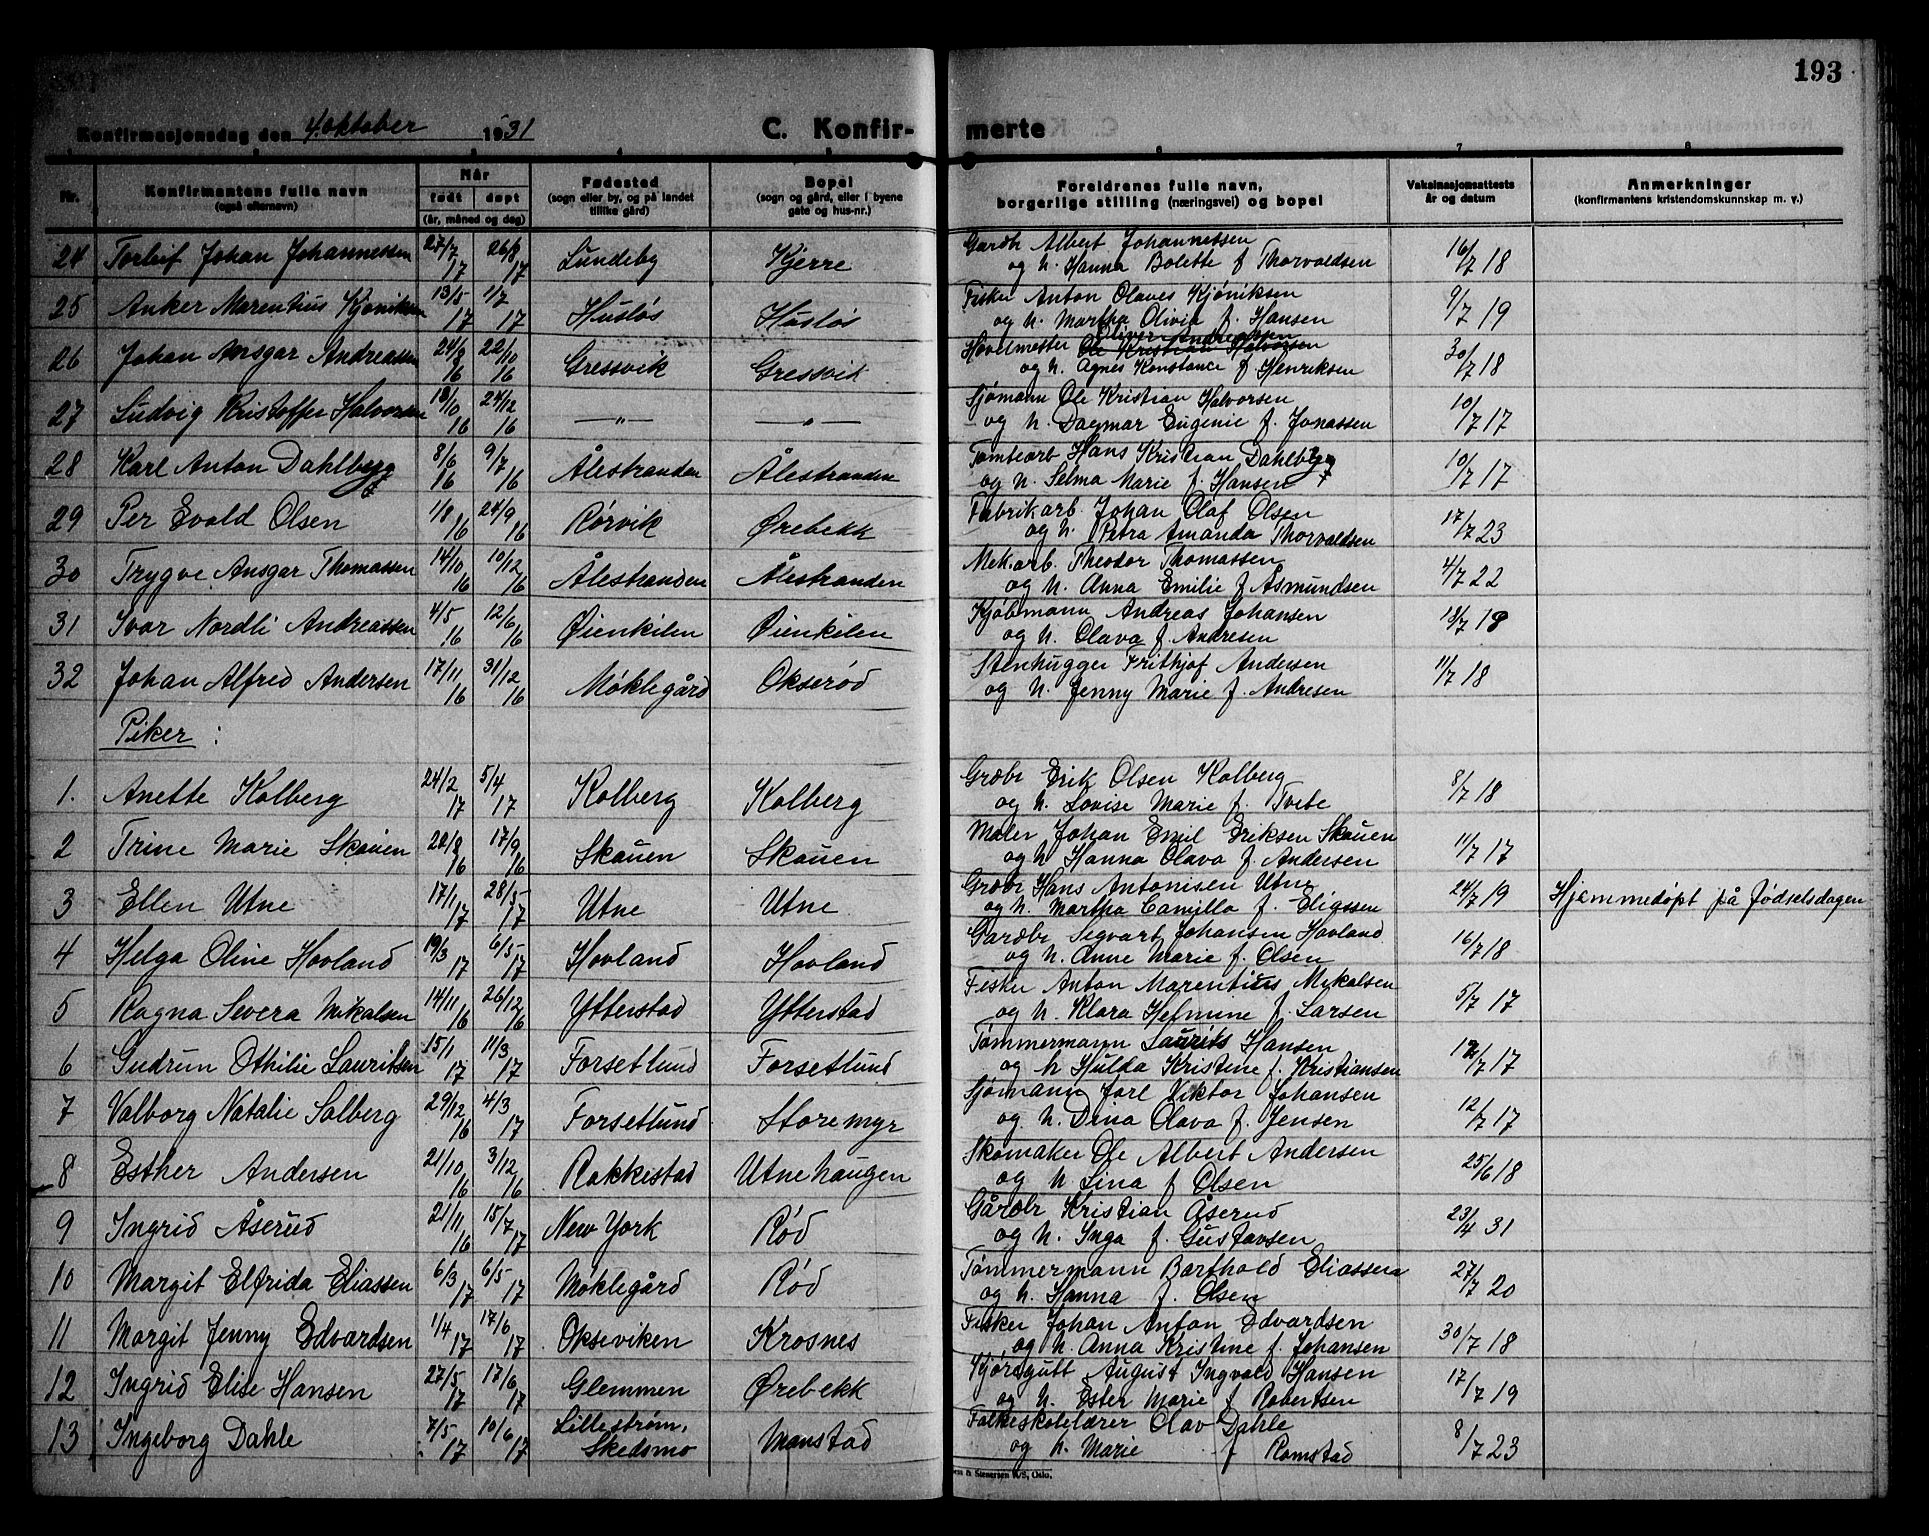 193
Konfirmasjonsdag den 4. oktober 1931
C. Konfir- merte
Nr.
Konfirmantens fulle navn
(også efternavn)
Når
født
døpt
(år, måned og dag)
Fødested
(sogn eller by, og på landet
tillike gård)
Bopel
(sogn og gård, eller i byene
gate og hus-nr.)
Foreldrenes fulle navn,
borgerlige stilling (næringsvei) og bopel
Vaksinasjonsattests
år og datum
Anmerkninger
(konfirmantens kristendomskunnskap m. v.)
24 Torleif Johan Johannessen 27/7 17 26/8 17 Lundeby Kjerre Gardbr Albert Johannessen 16/7 18
og h. Hanna Bolette f Thorvaldsen
25 Anker Marentius Kjøniksen 13/5 17 1/7 17 Husløs Husløs Fisker Anton Olaves Kjøniksen 9/7 19
og h. Martha Olivia f. Hansen
26 Johan Ansgar Andreassen 24/9 16 22/10 16 Gressvik Gressvik Høvelmester Ole Kristian Halvorsen Oliver Andreassen 30/7 18
og h. Agnes Konstance f Henriksen
27 Ludvig Kristoffer Halvorsen 18/10 16 24/12 16 — " — — " — Sjømann Ole Kristian Halvorsen 10/7 17
og h. Dagmar Eugenie f. Jonassen
28 Karl Anton Dahlberg 8/6 16 9/7 16 Ålestranden Ålestranden Tomtearb Hans Kristian Dahlberg 10/7 17
og h. Selma Marie f. Hansen
29 Per Evald Olsen 1/8 16 24/9 16 Rørvik Ørebekk Fabrik.arb. Johan Olaf Olsen 17/7 23
og h. Petra Amanda Thorvaldsen
30 Trygve Ansgar Thomassen 14/10 16 10/12 16 Ålestranden Ålestranden Mek.arb. Theodor Thomassen 4/7 22
og h. Anna Emilie f Asmundsen
31 Ivar Nordli Andreassen 4/5 16 12/6 16 Øienkilen Øienkilen Kjøbmann Andreas Johansen 12/7 18
og h. Olava f. Andresen
32 Johan Alfred Andersen 17/11 16 31/12 16 Møklegård Okserød Stenhugger Frithjof Andersen 11/7 18
og h. Jenny Marie f. Andresen
Piker :
1. Anette Kolberg 24/2 17 5/4 17 Kolberg Kolberg Grdbr Erik Olsen Kolberg 8/7 18
og h. Lovise Marie f. Tvete
2 Trine Marie Skauen 28/8 16 17/9 16 Skåuen Skauen Maler Johan Emil Eriksen Skauen 11/7 17
og h Hanna Olava f. Andersen
3 Ellen Utne 17/1 17 28/5 17 Utne Utne Grdbr Hans Antonisen Utne 24/7 19 Hjemmedøpt på fødselsdagen
og h. Martha Camilla f. Eliassen
4 Helga Oline Hovland 19/3 17 6/5 17 Hovland Hovland Gardbr Segvart Johansen Hovland 16/7 18
og h. Anne Marie f. Olsen
5 Ragna Severa Mikalsen 14/11 16 26/12 16 Ytterstad Ytterstad Fisker Anton Marentius Mikalsen 5/7 17
og h. Klara Helmine f. Larsen
6 Gudrun Othilie Lauritsen 15/1 17 11/3 17 Forsetlund Forsetlund Tømmermann Laurits Hansen 12/7 17
og h Hulda Kristine f. Kristiansen
7 Valborg Natalie Solberg 29/12 16 4/3 17 Forsetlund Storemyr Sjømann Jarl Viktor Johansen 12/7 17
og h. Dina Olava f. Jensen
8 Esther Andersen 21/10 16 3/12 16 Rakkestad Utnehaugen Skomaker Ole Albert Andersen 25/6 18
og h Lina f Olsen
9 Ingrid Åserud 21/11 16 15/7 17 New York Rød Gårdbr Kristian Åserud 23/4 31
og h. Inga f. Gustavsen
10 Margit Elfrida Eliassen 6/3 17 6/5 17 Møklegård Rød Tømmermann Barthold Eliassen 27/7 20
og h. Hanna f. Olsen
11 Margit Jenny Edvardsen 1/4 17 17/6 17 Okseviken Krosnes Fisker Johan Anton Edvardsen 30/7 18
og h. Anna Kristine f. Johansen
12 Ingrid Elise Hansen 27/5 17 17/6 17 Glemmen Ørebekk Kjøregutt August Ingvald Hansen 17/7 19
og h. Ester Marie f Robertsen
13 Ingeborg Dahle 7/5 17 10/6 17 Lillestrøm, Skedsmo Manstad Folkeskolelærer Olav Dahle 8/7 23
og h. Marie f Romstad
& Stenersen A/S, Oslo.